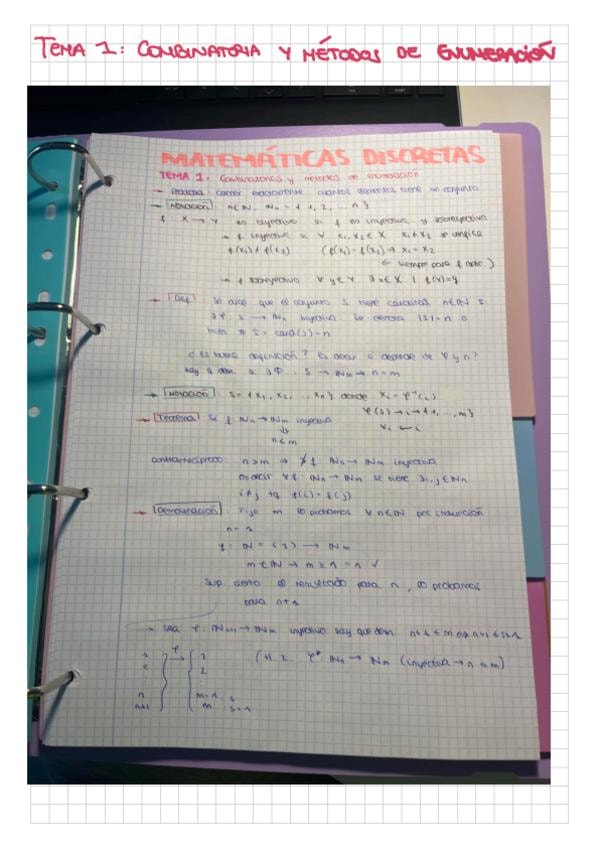 TEMA 1: COMBINATORIA Y MÉTODOS DE ENUMERACIÓN
MATEMÁTICAS DISCRETAS
TEMA 1: Combinatorias y métodos de enumeración
→ Problema conocer exactamente cuantos elementos tiene un conjunto
→ Notación n∈ℕ, ℕn = {1, 2, ... n}
f: X → Y es biyectiva si f es inyectiva y sobreyectiva
→ f inyectiva si ∀ x1, x2 ∈ X x1 ≠ x2 se verifica
f(x1) ≠ f(x2) (f(x1) = f(x2) → x1 = x2
← siempre para f aplic.)
→ f sobreyectiva ∀ y∈Y ∃ x∈X | f(x)=y
→ Def Se dice que el conjunto S tiene cardinal n∈ℕ si
∃ φ: S → ℕn biyectiva Se denota |S| = n o
bien # S = card(S) = n
¿Es buena definición? Es decir ¿depende de φ y n?
hay q dem. si ∃ Φ: S → ℕm → n = m
→ Notación: S = {x1, x2, ..., xn} donde xi = φ⁻¹(i)
→ Teorema Si f: ℕn → ℕm inyectiva
⇓
n ≤ m
contrarrecíproco n > m → ∄ f: ℕn → ℕm inyectiva
es decir ∀ f: ℕn → ℕm se tiene ∃ i, j ∈ ℕn
i ≠ j tq f(i) = f(j)
→ Demostración Fijo m lo probamos ∀ n∈ℕ por inducción
n = 1
m ∈ ℕ → m ≥ 1 = n ✓
Sup cierto el resultado para n, lo probamos
para n+1
→ Sea φ: ℕn+1 → ℕm inyectiva hay que dem. n+1 ≤ m
1
2
n
n+1
φ
1
2
m-1
m
φ*: ℕn → ℕm (inyectiva → n ≤ m)